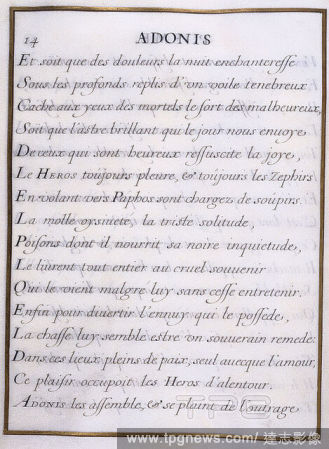 14 ADONIS
Et soit que des douleurs la nuit enchanteresse
Sous les profonds replis d'vn voile tenebreux
Cache aux yeux des mortels le sort des malheureux,
Soit que l'astre brillant qui le jour nous enuoye
De ceux qui sont heureux ressuscite la joye,
Le HEROS toûjours pleure, & toûjours les Zephirs
En volant vers Paphos sont chargez de soupirs.
La molle oysiueté, la triste solitude,
Poisons dont il nourrit sa noire inquietude,
Le liurent tout entier au cruel souuenir
Qui le vient malgre luy sans cesse entretenir.
Enfin pour diuertir l'ennuy qui le possede,
La chasse luy semble estre vn souuerain remede:
Dans ces lieux pleins de paix, seul auecque l'amour,
Ce plaisir occupoit les Heros d'alentour.
ADONIS les assemble, & se plaint de l'outrage
TPG
www.tpgnews.com/ 達志影像